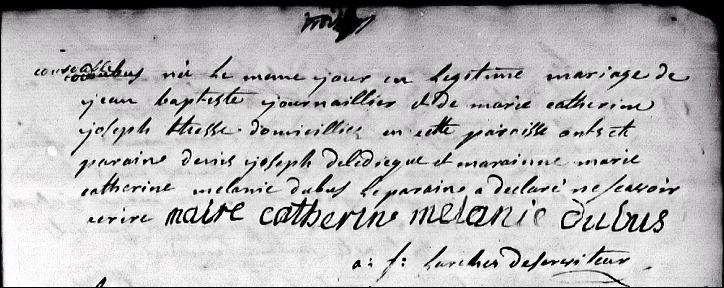 trois
née Le meme jour en legitime mariage de
jean baptiste journaillier et de marie catherine
joseph thesse domicilliez en cette paroisse ont ete
paraine denis joseph deledicque et maraine marie
catherine melanie dubus Le paraine a declaré ne scavoir
ecrire maire catherine melanie dubus
a: f: desserviteur